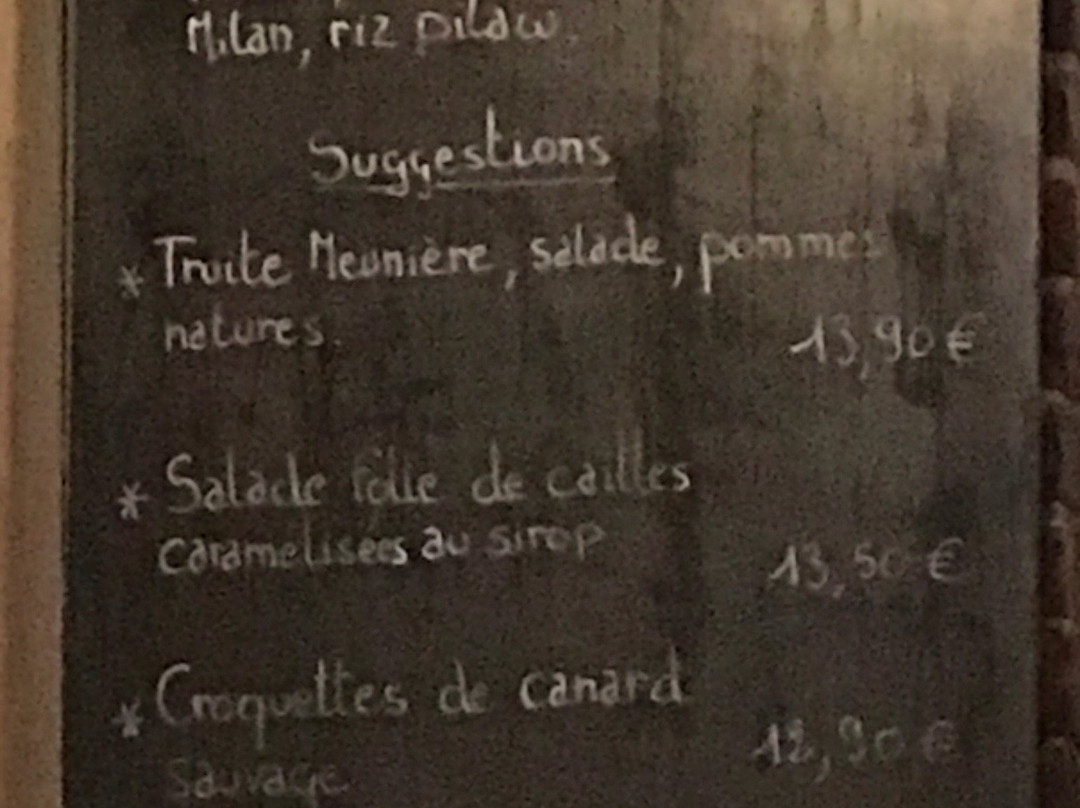 Milan, riz pilaw.
Suggestions
* Truite Meunière, salade, pommes
natures.
13,90 €
* Salade folle de cailles
caramelisées au sirop
13,50 €
* Croquettes de canard
sauvage
12,90 €